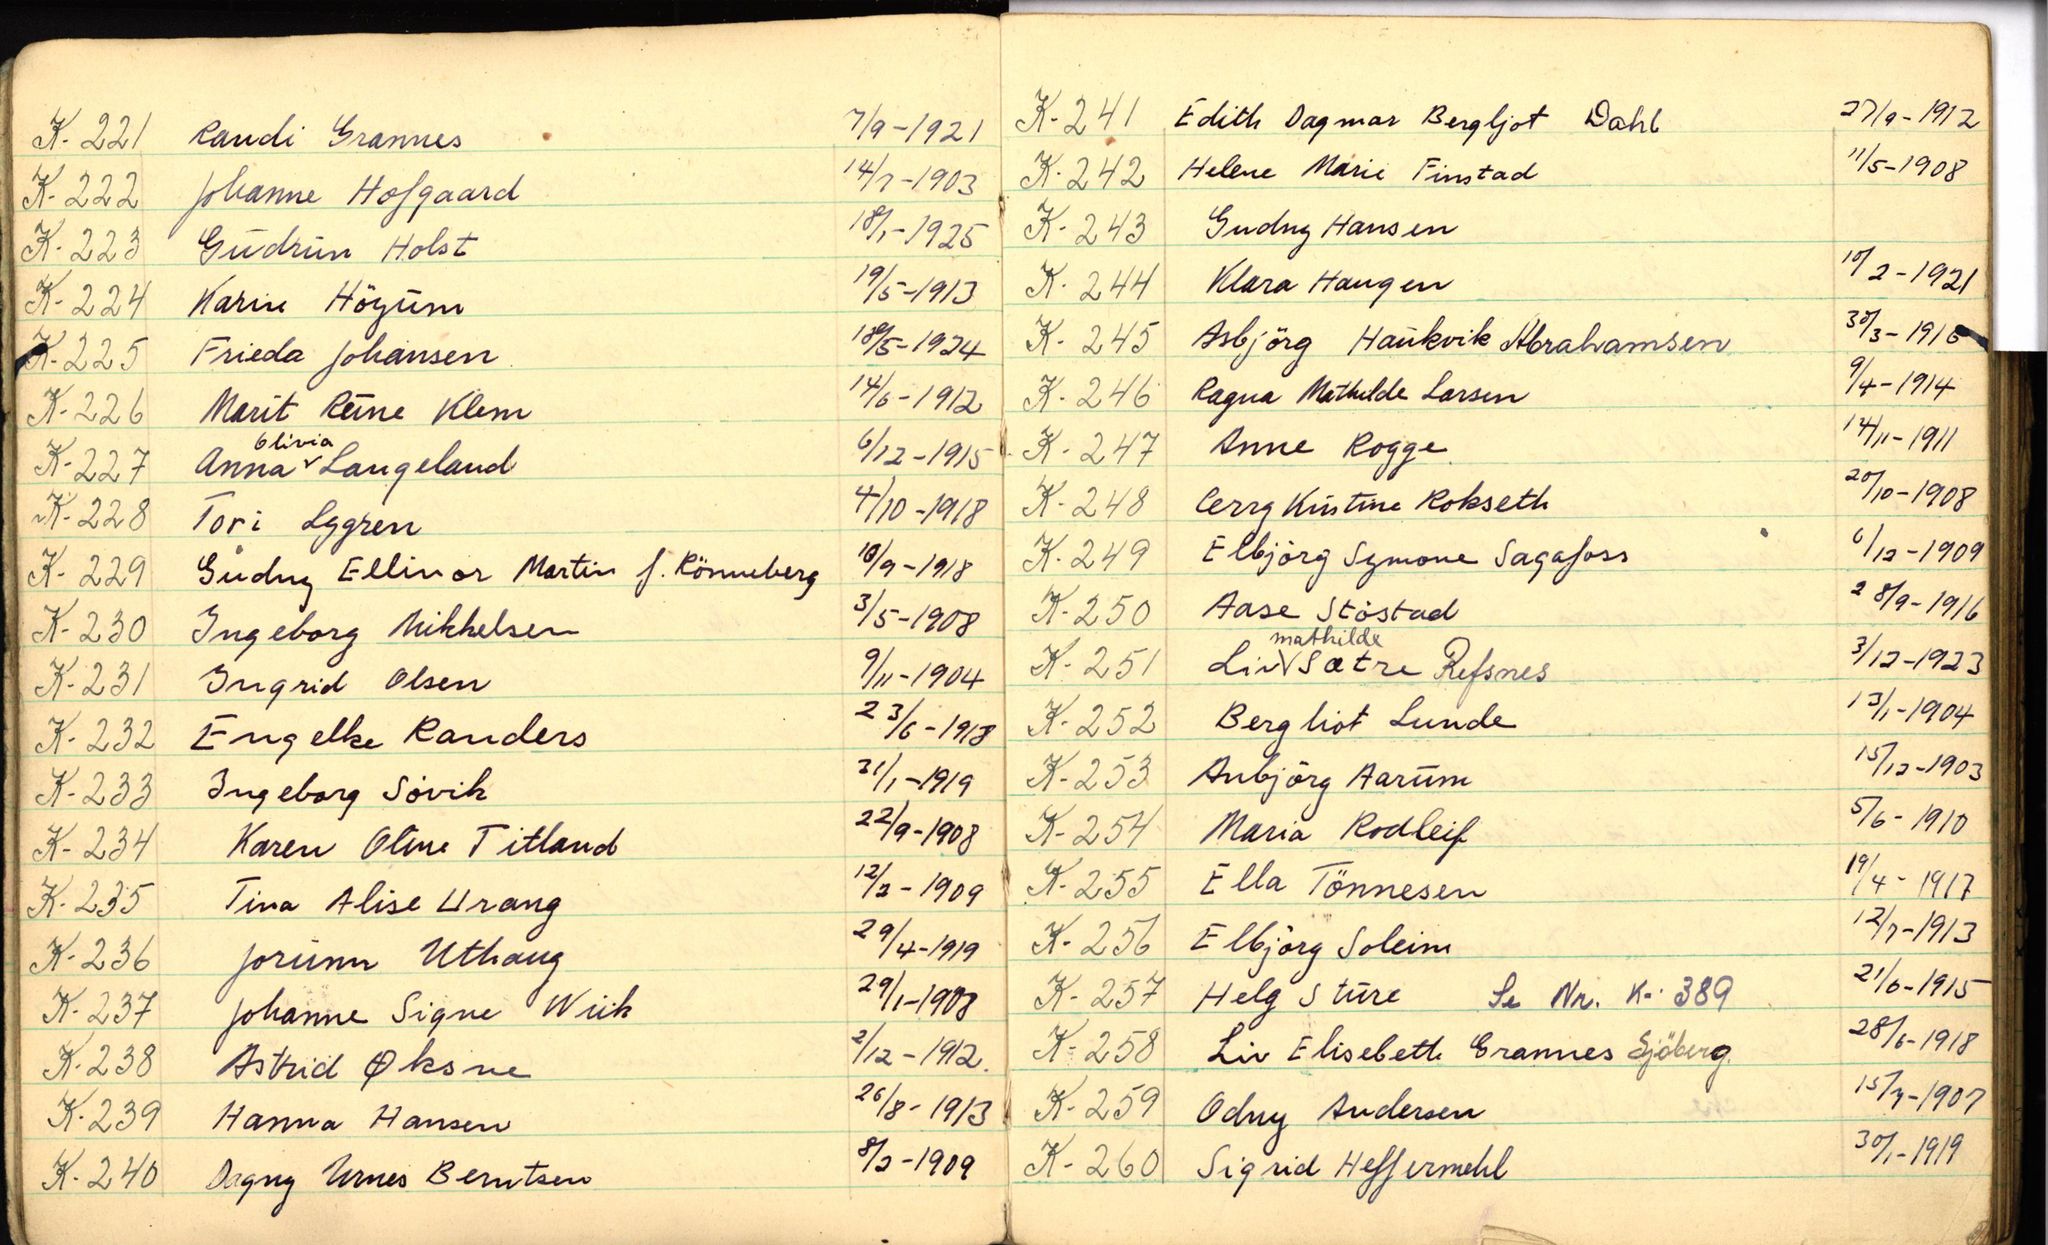 K-221 Randi Grannes 7/9-1921
K-222 Johanne Hofgaard 14/7-1903
K-223 Gudrun Holst 18/1-1925
K-224 Karin Höyum 19/5-1913
K-225 Frieda Johansen 18/5-1924
K-226 Marit Reine Klem 14/6-1912
K-227 Anna Olivia Langeland 6/12-1915
K-228 Tori Lggren 4/10-1918
K-229 Gudny Ellinor Martin f. Rönneberg 10/9-1918
K-230 Ingeborg Mikkelsen 3/5-1908
K-231 Ingrid Olsen 9/11-1904
K-232 Engelke Randers 23/6-1918
K-233 Ingeborg Sövik 31/1-1919
K-234 Karen Oline Titland 22/9-1908
K-235 Tina Alise Urang 12/2-1909
K-236 Jorunn Uthaug 29/4-1919
K-237 Johanne Signe Wiik 29/1-1908
K-238 Astrid Øksne 2/12-1912.
K-239 Hanna Hansen 26/8-1913
K-240 Dagny Urnes Berntsen 8/2-1909
K-241 Edith Dagmar Bergljot Dahl 27/9-1912
K-242 Helene Marie Finstad 11/5-1908
K-243 Gudny Hansen
K-244 Klara Haugen 10/2-1921
K-245 Asbjörg Haukvik Abrahamsen 30/3-1916
K-246 Ragna Mathilde Larsen 9/4-1914
K-247 Anne Rogge 14/11-1911
K-248 Cerry Kristine Rokseth 20/10-1908
K-249 Elbjörg Symone Sagafoss 6/12-1909
K-250 Aase Stöstad 28/9-1916
K-251 Liv Mathilde Sætre Refsnes 3/12-1923
K-252 Bergliot Lunde 13/1-1904
K-253 Anbjörg Aarum 15/12-1903
K-254 Maria Rodleif 5/6-1910
K-255 Ella Tönnesen 19/4-1917
K-256 Elbjörg Soleim 12/7-1913
K-257 Helg Sture Se Nr. K-389 21/6-1915
K-258 Liv Elisebeth Grannes Sjöberg 28/6-1918
K-259 Odny Andersen 15/7-1907
K-260 Sigrid Heffermehl 30/1-1919